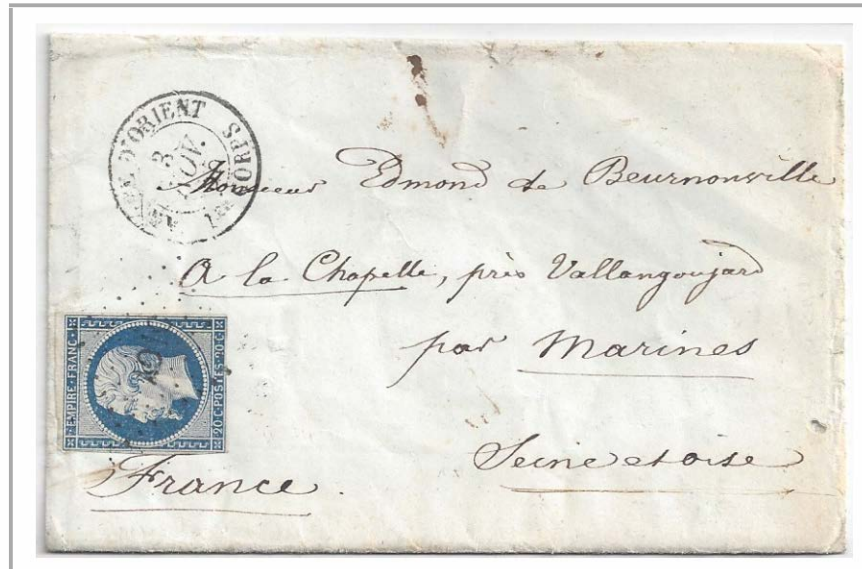 ARMÉE D'ORIENT 1ER CORPS
3
NOV.
Monsieur Edmond de Beurnonville
A la Chapelle, près Vallangoujard
par Marines
Seine et oise
France.
EMPIRE-FRANC-
20·C·POSTES·20·C